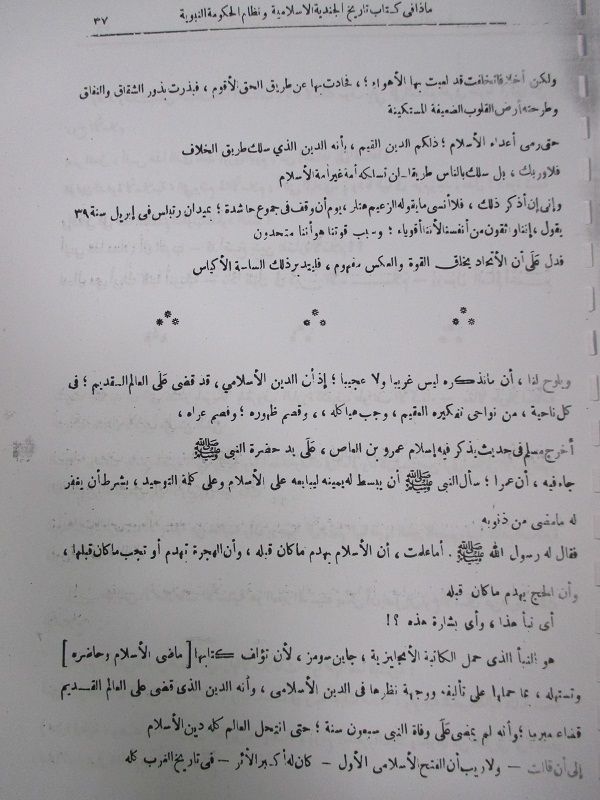 ماذا فى كتاب تاريخ الجندية الاسلامية ونظام الحكومة النبوية ٣٧
ولكن أخلافا تخلفت قد لعبت بها الأهواء ؛ ، فحادت بها عن طريق الحق الأقوم ، فبذرت بذور الشقاق والنفاق
وطرحته أرض القلوب الضعيفة المستكينة
حتى رمى أعداء الأسلام ؛ ذلكم الدين القيم ، بأنه الدين الذي سلك طريق الخلاف
فلا وربك ، بل سلك بالناس طريقا لن تسلكه أمة غير أمة الأسلام
وإنى إن أذكر ذلك ، فلا أنسى ما يقوله الزعيم هتلر ، يوم أن وقف فى جموع حاشدة ؛ بميدان رتباس فى إبريل سنة ٣٩
يقول ، إننا واثقون من أنفسنا لأننا أقوياء ؛ وسبب قوتنا هو أننا متحدون
فدل على أن الأتحاد يخلق القوة والعكس مفهوم ، فليتدبر ذلك الساسة الأكياس
ويلوح لنا ، أن ما نذكره ليس غريبا ولا عجيبا ؛ إذ أن الدين الأسلامي ، قد قضى على العالم القديم ؛ فى
كل ناحية ، من نواحى تفكيره العقيم ، وجب هياكله ، ، وقصم ظهوره ؛ وفصم عراه ،
أخرج مسلم فى حديث يذكر فيه إسلام عمرو بن العاص ، على يد حضرة النبى ﷺ
جاء فيه ، أن عمرا ؛ سأل النبى ﷺ أن يبسط له يمينه ليبايعه على الأسلام وعلى كلمة التوحيد ، بشرط أن يغفر
له ما مضى من ذنوبه
فقال له رسول الله ﷺ . أما علمت ، أن الأسلام يهدم ما كان قبله ، وأن الهجرة تهدم أو تجب ما كان قبلها ،
وأن الحج يهدم ما كان قبله
أى نبأ هذا ، وأى بشارة هذه ؟!
هو النبأ الذى حمل الكاتبة الأنجليزية ، جاين سومز ، لأن تؤلف كتابها [ ماضى الأسلام وحاضره ]
وتستهله ، بما حملها على تأليفه ووجهة نظرها فى الدين الأسلامى ، وأنه الدين الذى قضى على العالم القديم
قضاء مبرما ؛ وأنه لم يمضى على وفاة النبى سبعون سنة ؛ حتى انتحل العالم كله دين الأسلام
إلى أن قالت — ولاريب أن الفتح الأسلامى الأول — كان له أكبر الأثر — فى تاريخ الغرب كله